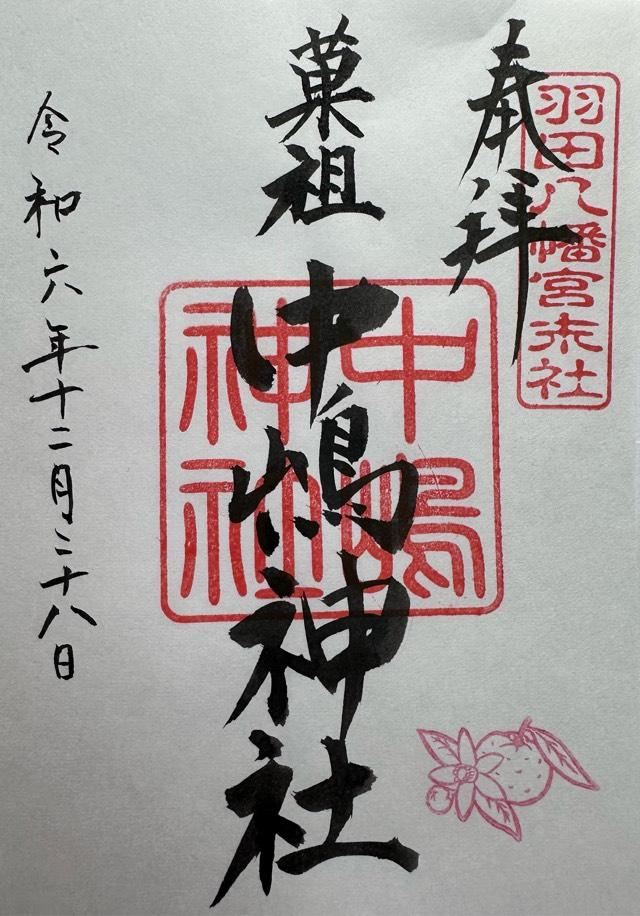 奉拝
羽田八幡宮末社
菓祖
中嶋神社
中嶋神社
令和六年十二月二十八日